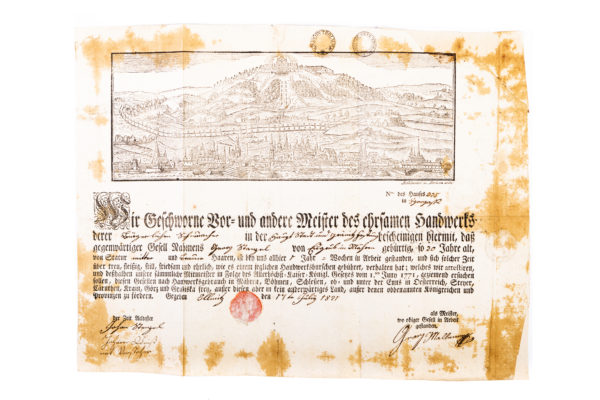 Nro des Hauses
in
Wir Geschworne Vor- und andere Meister des ehrsamen Handwerks
derer in der bescheinigen hiermit, daß
gegenwärtiger Gesell Nahmens Georg Stengel von gebürtig, so 20 Jahr alt,
von Statur mitter und Haaren, ist bey uns allhier 1 Jahr Wochen in Arbeit gestanden, und sich solcher Zeit
über treu, fleißig, still, friedsam und ehrlich, wie es einem jeglichen Handwerksburschen gebühret, verhalten hat; welches wir attestiren,
und deßhalben unsere sämmtliche Mitmeister in Folge des Allerhöchst-Kaiser-Königl. Gesetzes vom 1. Juny 1771. geziemend ersuchen
sollen, diesen Gesellen nach Handwerksgebrauch in Mähren, Böhmen, Schlesien, ob- und unter der Enns in Oesterreich, Steyer,
Cärnthen, Krain, Görz und Gradiska frey, außer diesen aber in kein auswärtiges Land, außer denen obbenannten Königreichen und
Provinzen zu fördern. Gegeben Ollmütz den 17ten July 1821
der Zeit Aeltester
als Meister,
wo obiger Gesell in Arbeit
gestanden.
Johan Stengel
Georg